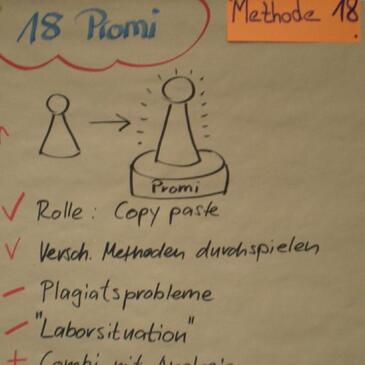 18 Promi
Methode 18
Promi
Rolle: Copy paste
Versch. Methoden durchspielen
- Plagiatsprobleme
- "Laborsituation"
+ Combi mit Analogie